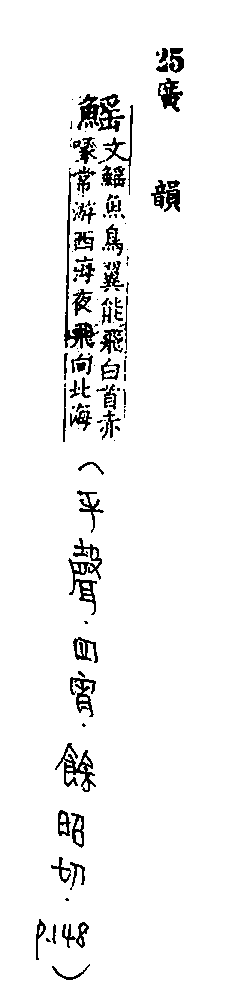 25廣韻
鰩
文鰩魚鳥翼能飛白首赤
喙常游西海夜飛向北海
(平聲.四宵.餘昭切.p.148)